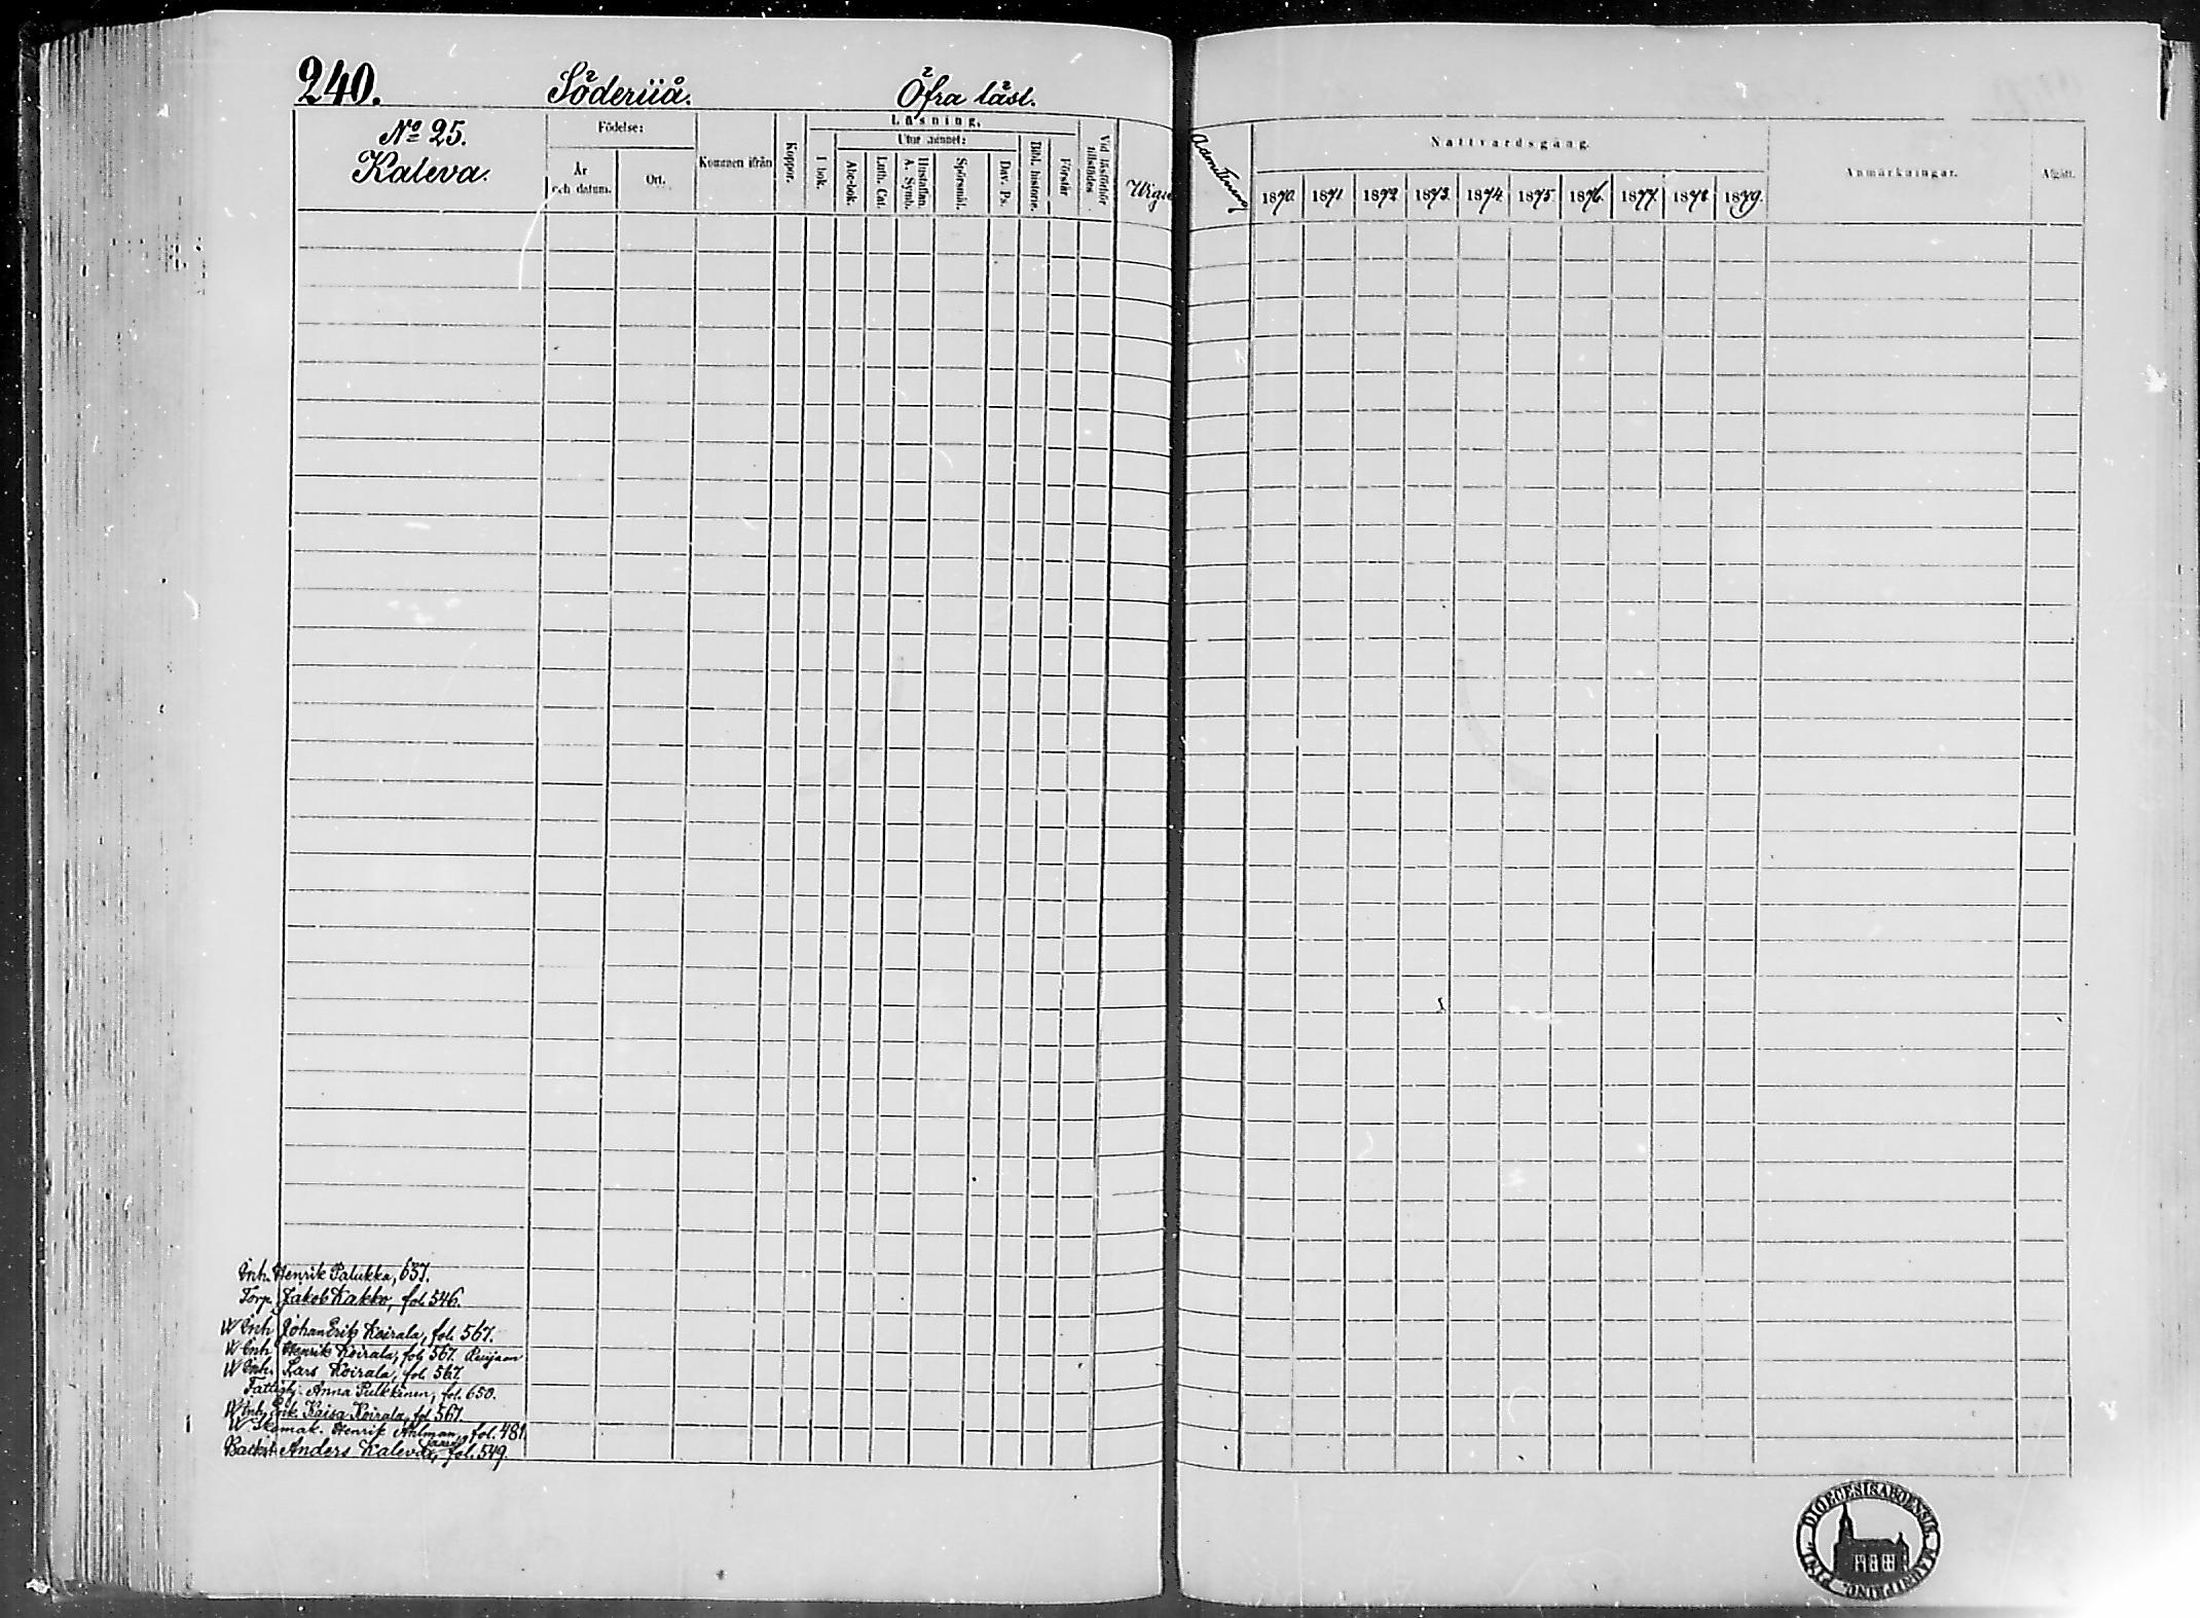 240. Söderiiå. Öfra läst.
No 25.
Kaleva.
Födelse:
År och datum.
Ort.
Kommen ifrån
Koppor.
Läsning.
Utur minnet:
I bok.
Abc-bok.
Luth. Cat.
Hustaflan. A. Symb.
Spörsmål.
Dav. Ps.
Bibl. historie.
Förstår
Vid läsförhör tillstädes
Nattvardsgång.
1870. 1871 1872 1873. 1874. 1875. 1876. 1877. 1878 1879.
Anmärkningar.
Afgått.
Inh. Henrik Palukka, 637.
Torp. Jakob Kakko, fol. 546.
W Inh Johan Erik Koirala, fol. 567.
W Inh Henrik Koirala, fol 567.
W Inh. Lars Koirala, fol. 567.
Fattighj. Anna Pulkkinen, fol. 650.
W Inh. Erik Kaisa Koirala, fol 567.
W. Skomak. Henrik Ahlman, fol. 481.
Backst. Anders Kaleva, fol. 549.